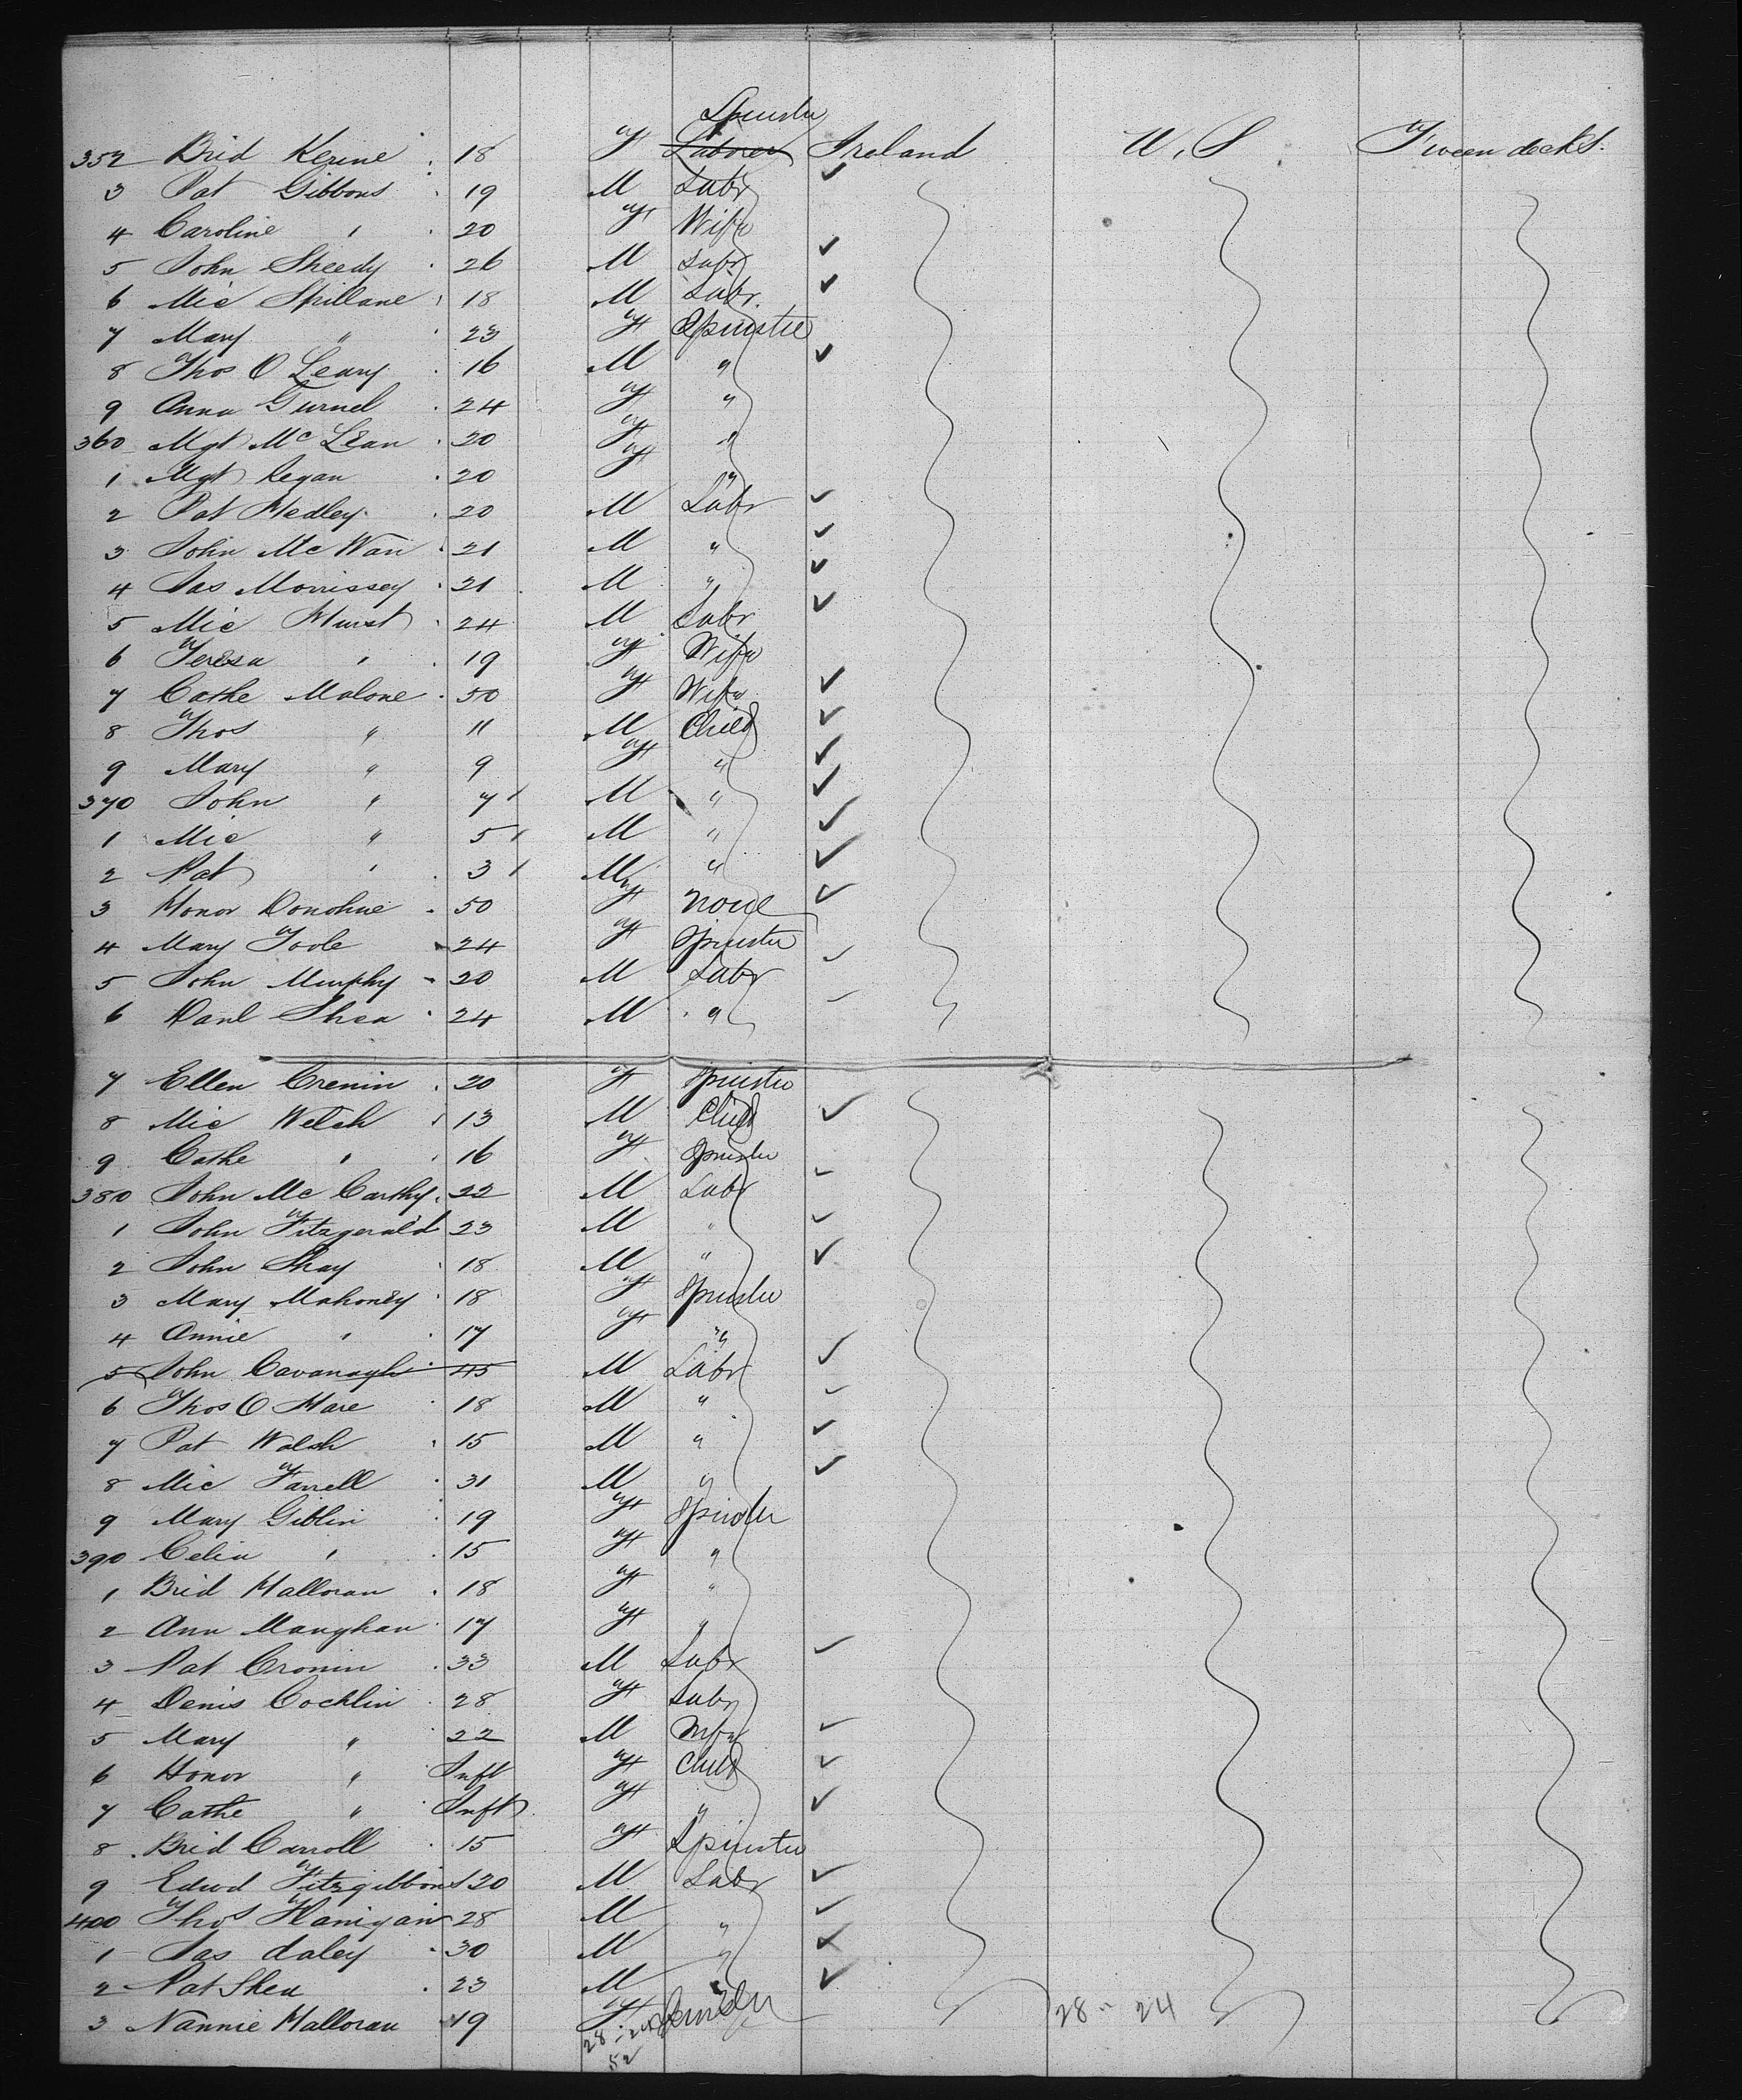 Spinster
352 Brid Kerine 18 F Laborer Ireland U.S. Tween decks.
3 Pat Gibbons 19 M Labr
4 Caroline " 20 F Wife
5 John Sheedy 26 M Labr
6 Mic Spillane 18 M Labr
7 Mary " 23 F Spinster
8 Thos O Leary 16 M "
9 Anna 24 F "
360 Mgt McLean 20 F "
1 Mgt Regan 20 F "
2 Pat Hedley 20 M Labr
3 John Mc Wan 21 M "
4 Jas Morrissey 21 M "
5 Mic Hurst 24 M Labr
6 Teresa " 19 F Wife
7 Cathe Malone 50 F Wife
8 Thos " 11 M Child
9 Mary " 9 F "
370 John " 7 M "
1 Mic " 5 M "
2 Pat " 3 M "
3 Honor Donohue 50 F None
4 Mary Toole 24 F Spinster
5 John Murphy 20 M Labr
6 Danl Shea 24 M "
7 Ellen Crenin 20 F Spinster
8 Mic Welsh 13 M Child
9 Cathe " 16 F Spinster
380 John Mc Carthy 22 M Labr
1 John Fitzgerald 23 M "
2 John Shay 18 M "
3 Mary Mahoney 18 F Spinster
4 Annie " 17 F "
5 John Cavanagh 45 M Labr
6 Thos O Hare 18 M "
7 Pat Walsh 15 M "
8 Mic Farrell 31 M "
9 Mary Giblin 19 F Spinster
390 Celia " 15 F "
1 Brid Halloran 18 F "
2 Ann Maughan 17 F "
3 Pat Cronin 33 M Labr
4 Denis Cochlin 28 F Labr
5 Mary " 22 M Wife
6 Honor " Inft F Child
7 Cathe " Inft F "
8 Brid Carroll 15 F Spinster
9 Edwd Fitzgibbons 20 M Labr
400 Thos Flanigan 28 M "
1 Jas daley 30 M "
2 Pat Shea 23 M "
3 Nannie Halloran 19 F Spinster 28 " 24
28 " 24
52